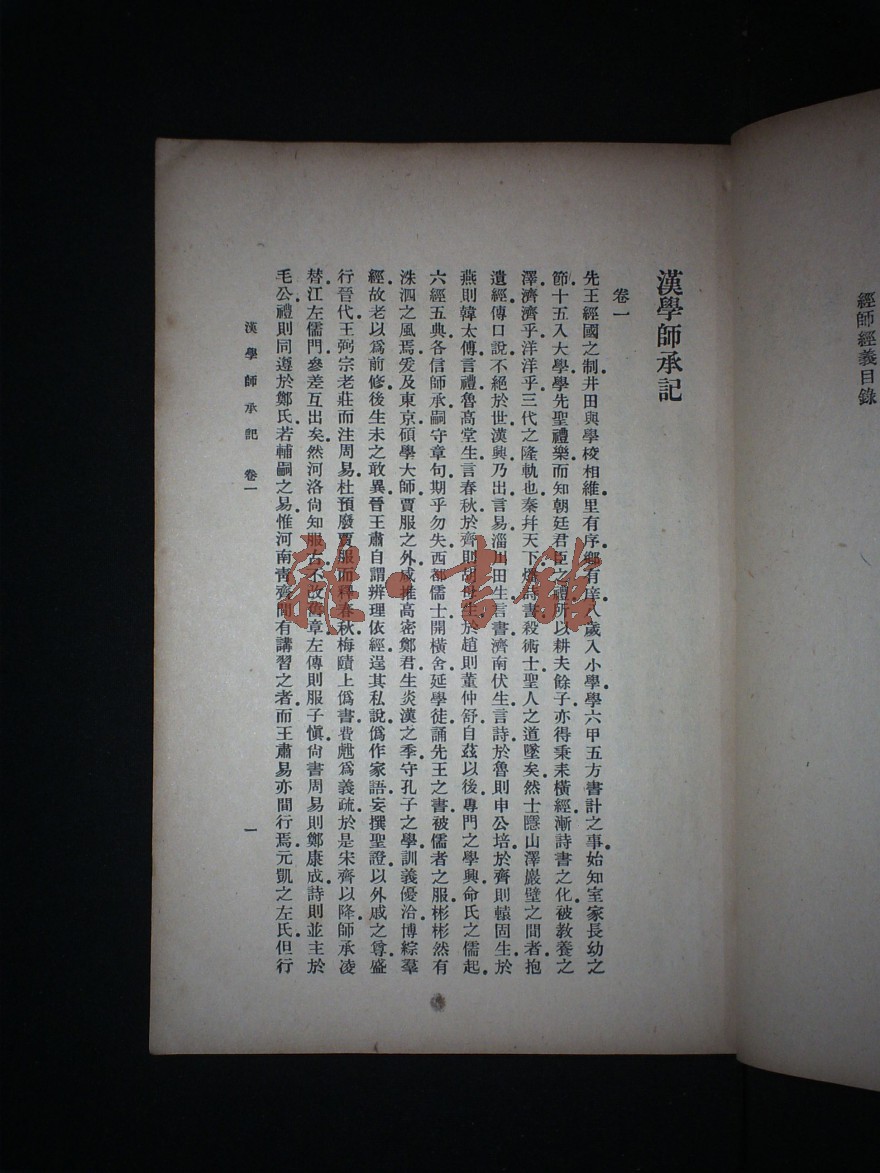 經師經義目錄
漢學師承記
卷一
先王經國之制井田與學校相維里有序鄉有庠八歲入小學學六甲五方書計之事始知室家長幼之
節十五入大學學先聖禮樂而知朝廷君臣之禮所以耕夫餘子亦得秉耒橫經漸詩書之化被教養之
澤濟濟乎洋洋乎三代之隆軌也秦幷天下燔詩書殺術士聖人之道墜矣然士隱山澤巖壁之間者抱
遺經傳口說不絕於世漢興乃出言易淄川田生言書濟南伏生言詩於魯則申公培於齊則轅固生於
燕則韓太傅言禮魯高堂生言春秋於齊則胡母生於趙則董仲舒自茲以後專門之學興命氏之儒起
六經五典各信師承嗣守章句期乎勿失西都儒士開橫舍延學徒誦先王之書被儒者之服彬彬然有
洙泗之風焉爰及東京碩學大師賈服之外咸推高密鄭君生炎漢之季守孔子之學訓義優洽博綜羣
經故老以爲前修後生未之敢異晉王肅自謂辨理依經逞其私說僞作家語妄撰聖證以外戚之尊盛
行晉代王弼宗老莊而注周易杜預廢賈服而釋春秋梅賾上僞書費甝爲義疏於是宋齊以降師承凌
替江左儒門參差互出矣然河洛尙知服古不改舊章左傳則服子愼尙書周易則鄭康成詩則並主於
毛公禮則同遵於鄭氏若輔嗣之易惟河南靑齊間有講習之者而王肅易亦間行焉元凱之左氏但行
漢學師承記 卷一
一
雜·書館